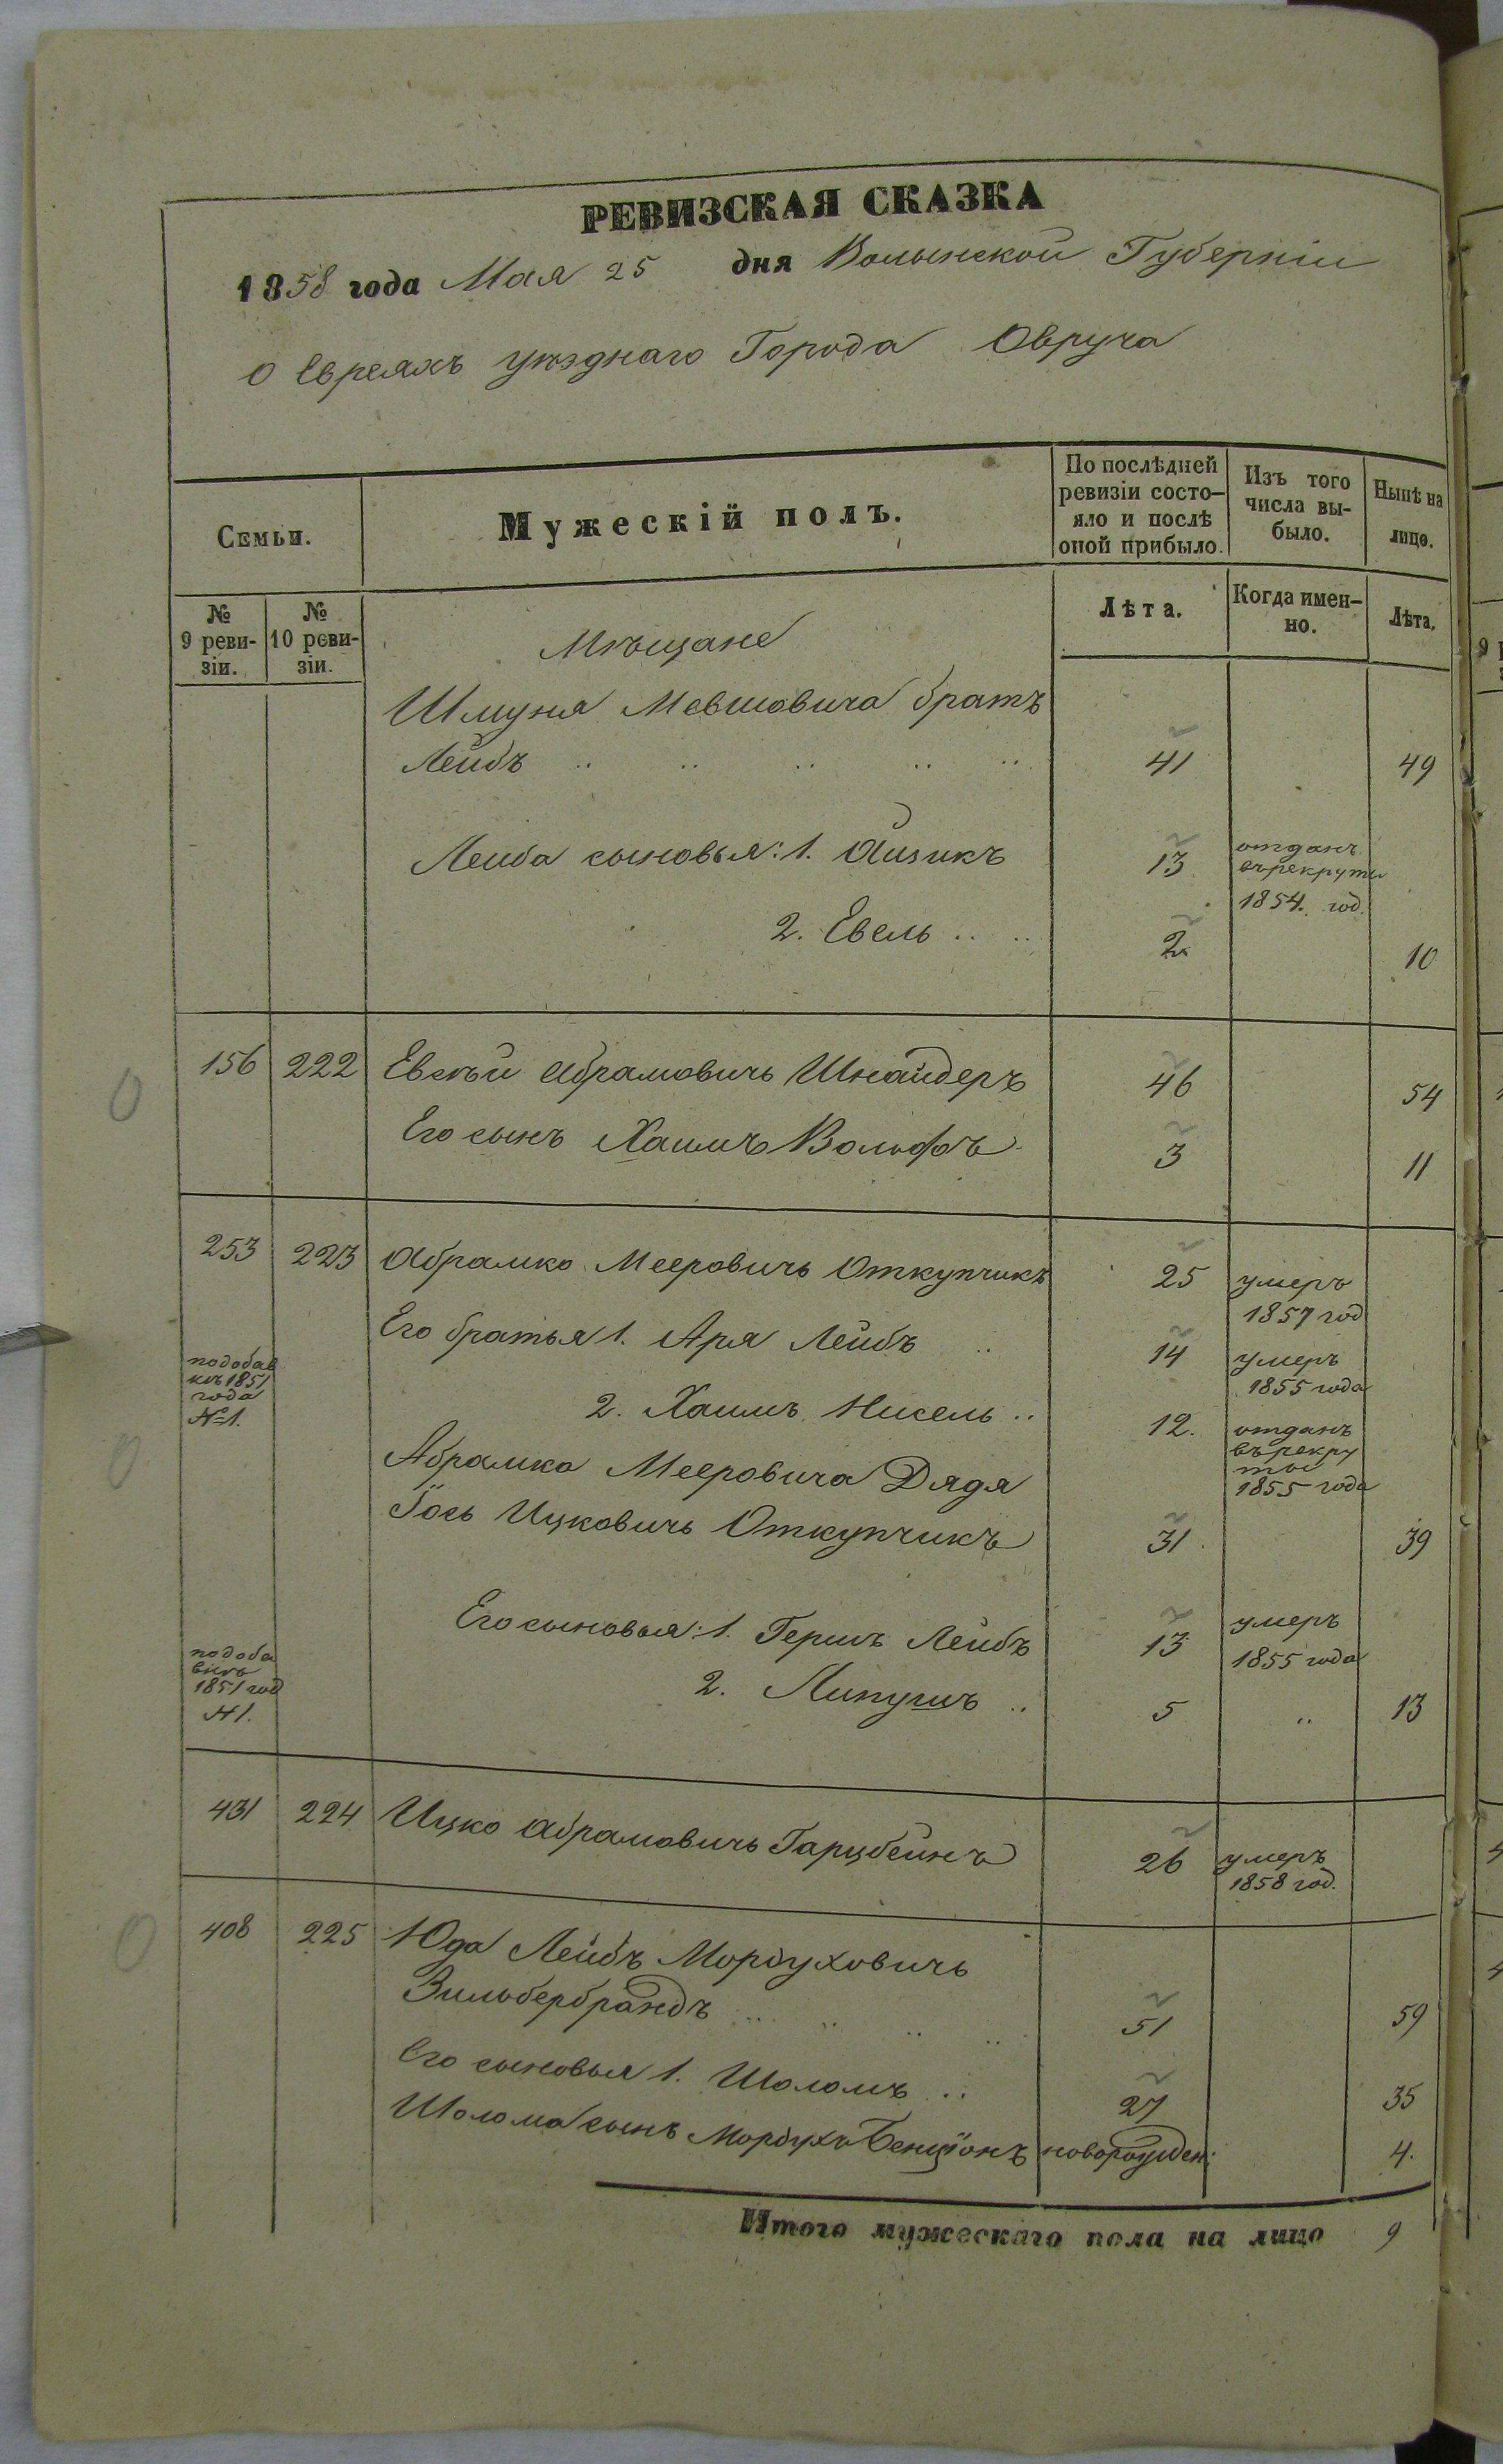 РЕВИЗСКАЯ СКАЗКА
1858 года Мая 25 дня Волынской Губерніи
О Евреяхъ уѣзднаго Города Овруча
Семьи.
Мужескій полъ.
По послѣдней ревизіи состо-
яло и послѣ
оной прибыло.
Изъ того
числа вы-
было.
Нынѣ на
лицо.
№
9 реви-
зіи.
№
10 реви-
зіи.
Лѣта.
Когда имен-
но.
Лѣта.
Мѣщане
Шмуня Мевшовича братъ
Лейбъ .. .. .. .. .. 41 49
Лейба сыновья: 1. Айзикъ 13 отданъ
въ рекруты
1854. год.
2. Евель .. .. 2 10
156 222 Евсѣй Абрамовичъ Шнайдеръ 46 54
Его сынъ Хаимъ Вольфъ 3 11
253 223 Абрамко Мееровичъ Откупчикъ 25 умеръ
1857 год
Его братья 1. Аря Лейбъ .. 14 умеръ
1855 года
подобав
къ 1851
года
№1.
2. Хаимъ Нисель .. 12. отданъ
въ рекру
ты
1855 года
Абрамка Мееровича Дядя
Іось Ицковичъ Откупчикъ 31 39
Его сыновья: 1. Гершъ Лейбъ 13 умеръ
1855 года
подоба
1851 год
№1.
2. Липушъ .. 5 .. 13
431 224 Ицко Абрамовичъ Гарцбейнъ 26 умеръ
1858 год.
408 225 Юда Лейбъ Мордуховичъ
Зильбербрандъ .. .. .. .. 51 59
Его сыновья 1. Шоломъ .. 27 35
Шолома сынъ Мордухъ Бенціонъ новорожден: 4.
Итого мужескаго пола на лицо 9